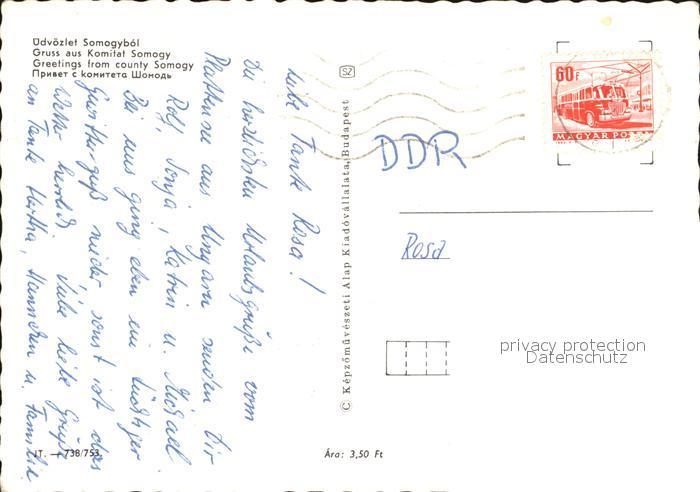 Üdvözlet Somogyból
Gruss aus Komitat Somogy
Greetings from county Somogy
Привет с комитета Шомодь
Liebe Tante Rosa!
Die herzlichsten Urlaubsgrüße vom
Plattensee aus Ungarn senden Dir
Rolf, Sonja, Katrin u. Michael.
Bei uns ging eben ein tüchtiger
Gewitterguß nieder, sonst ist das
Wetter herrlich. Viele liebe Grüße
an Tante Hertha, Hannchen u. Familie
JT. — 738/753
Ára: 3,50 Ft
SZ
© Képzőművészeti Alap Kiadóvállalata, Budapest
60 F
MAGYAR POSTA
DDR
Rosa
privacy protection
Datenschutz